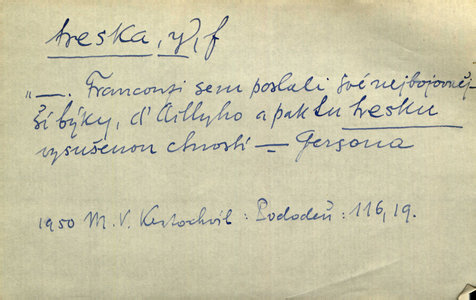 treska, y, f
"—. Francouzi sem poslali své nejbojovněj-
ší býky, d'Aillyho a pak tu tresku
vysušenou ctností — Gersona
1950 M. V. Kratochvíl: Pochodeň: 116, 19.